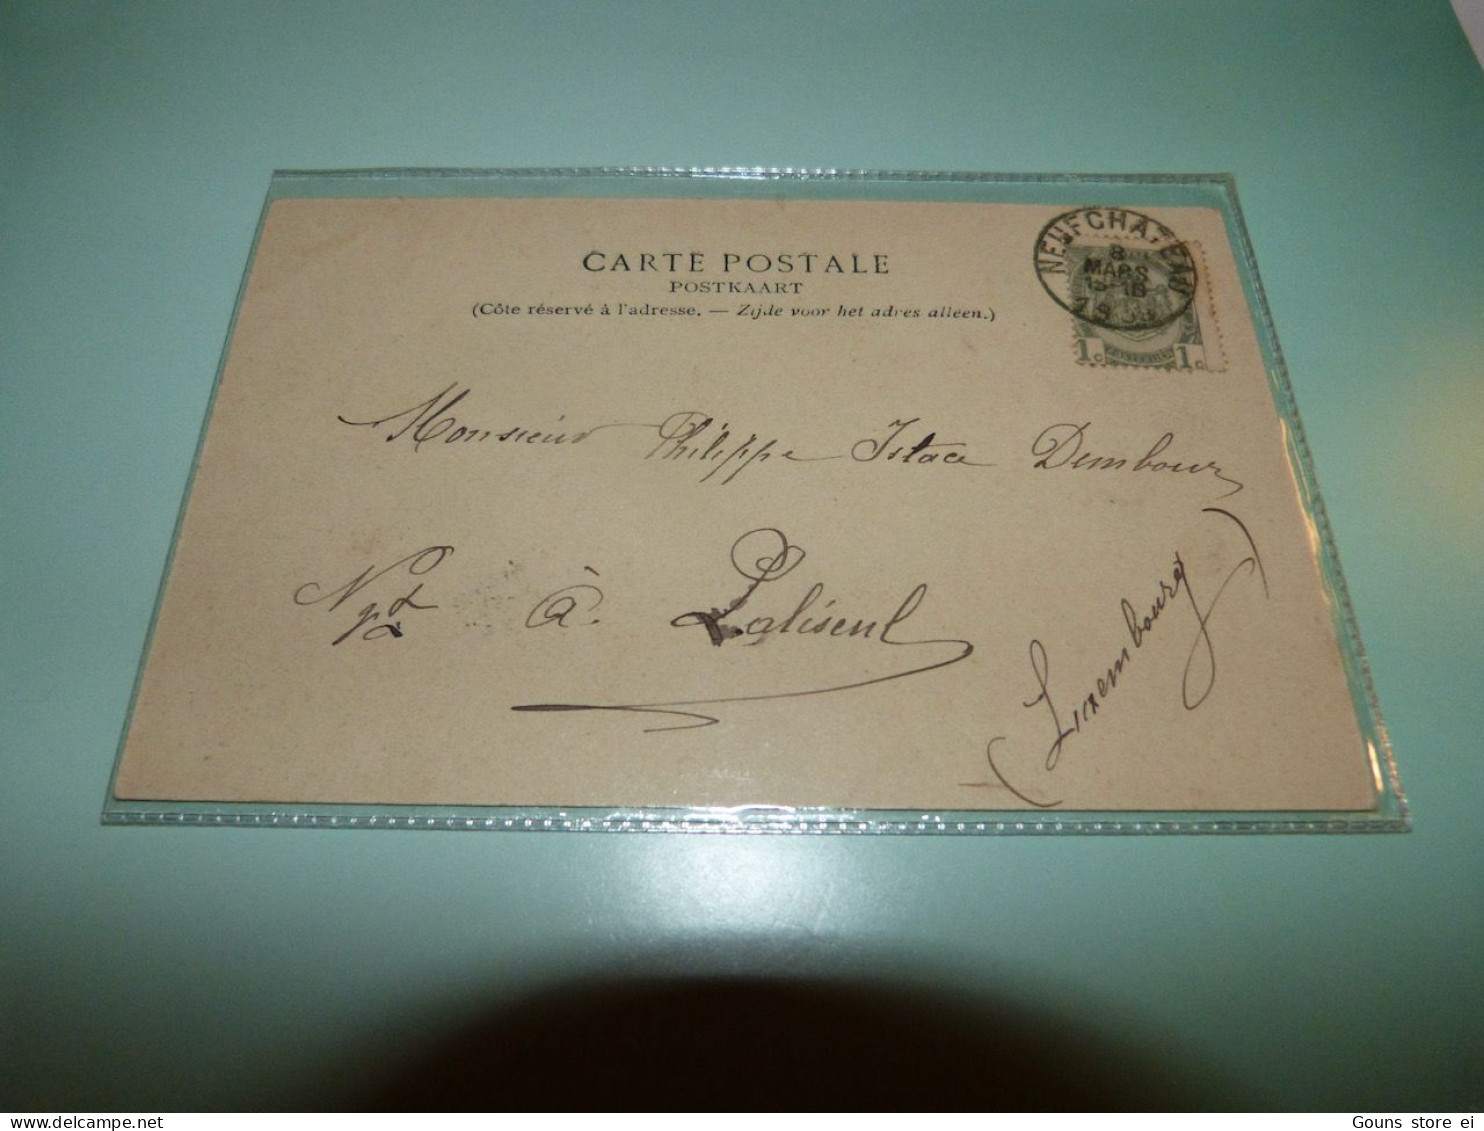 CARTE POSTALE
POSTKAART
(Côte réservé à l'adresse. — Zijde voor het adres alleen.)
NEUFCHATEAU
8
MARS
15-16
1 c 1 c
Monsieur Philippe Istace Dembour
Ngt à Paliseul
(Luxembourg)
Gouns store ei